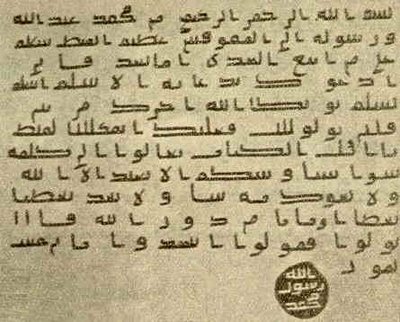 بسم الله الرحمن الرحيم من محمد عبد الله
ورسوله الى المقوقس عظيم القبط سلام
على من اتبع الهدى اما بعد فاني
ادعوك بدعاية الاسلام اسلم
تسلم يؤتك الله اجرك مرتين
فان توليت فعليك القبط
يا اهل الكتاب تعالوا الى كلمة
سوا بيننا وبينكم الا نعبد الا الله
ولا نشرك به شيا ولا يتخذ بعضنا
بعضا اربابا من دون الله فان
تولوا فقولوا اشهدوا بانا مس
لمون
الله
رسول
محمد